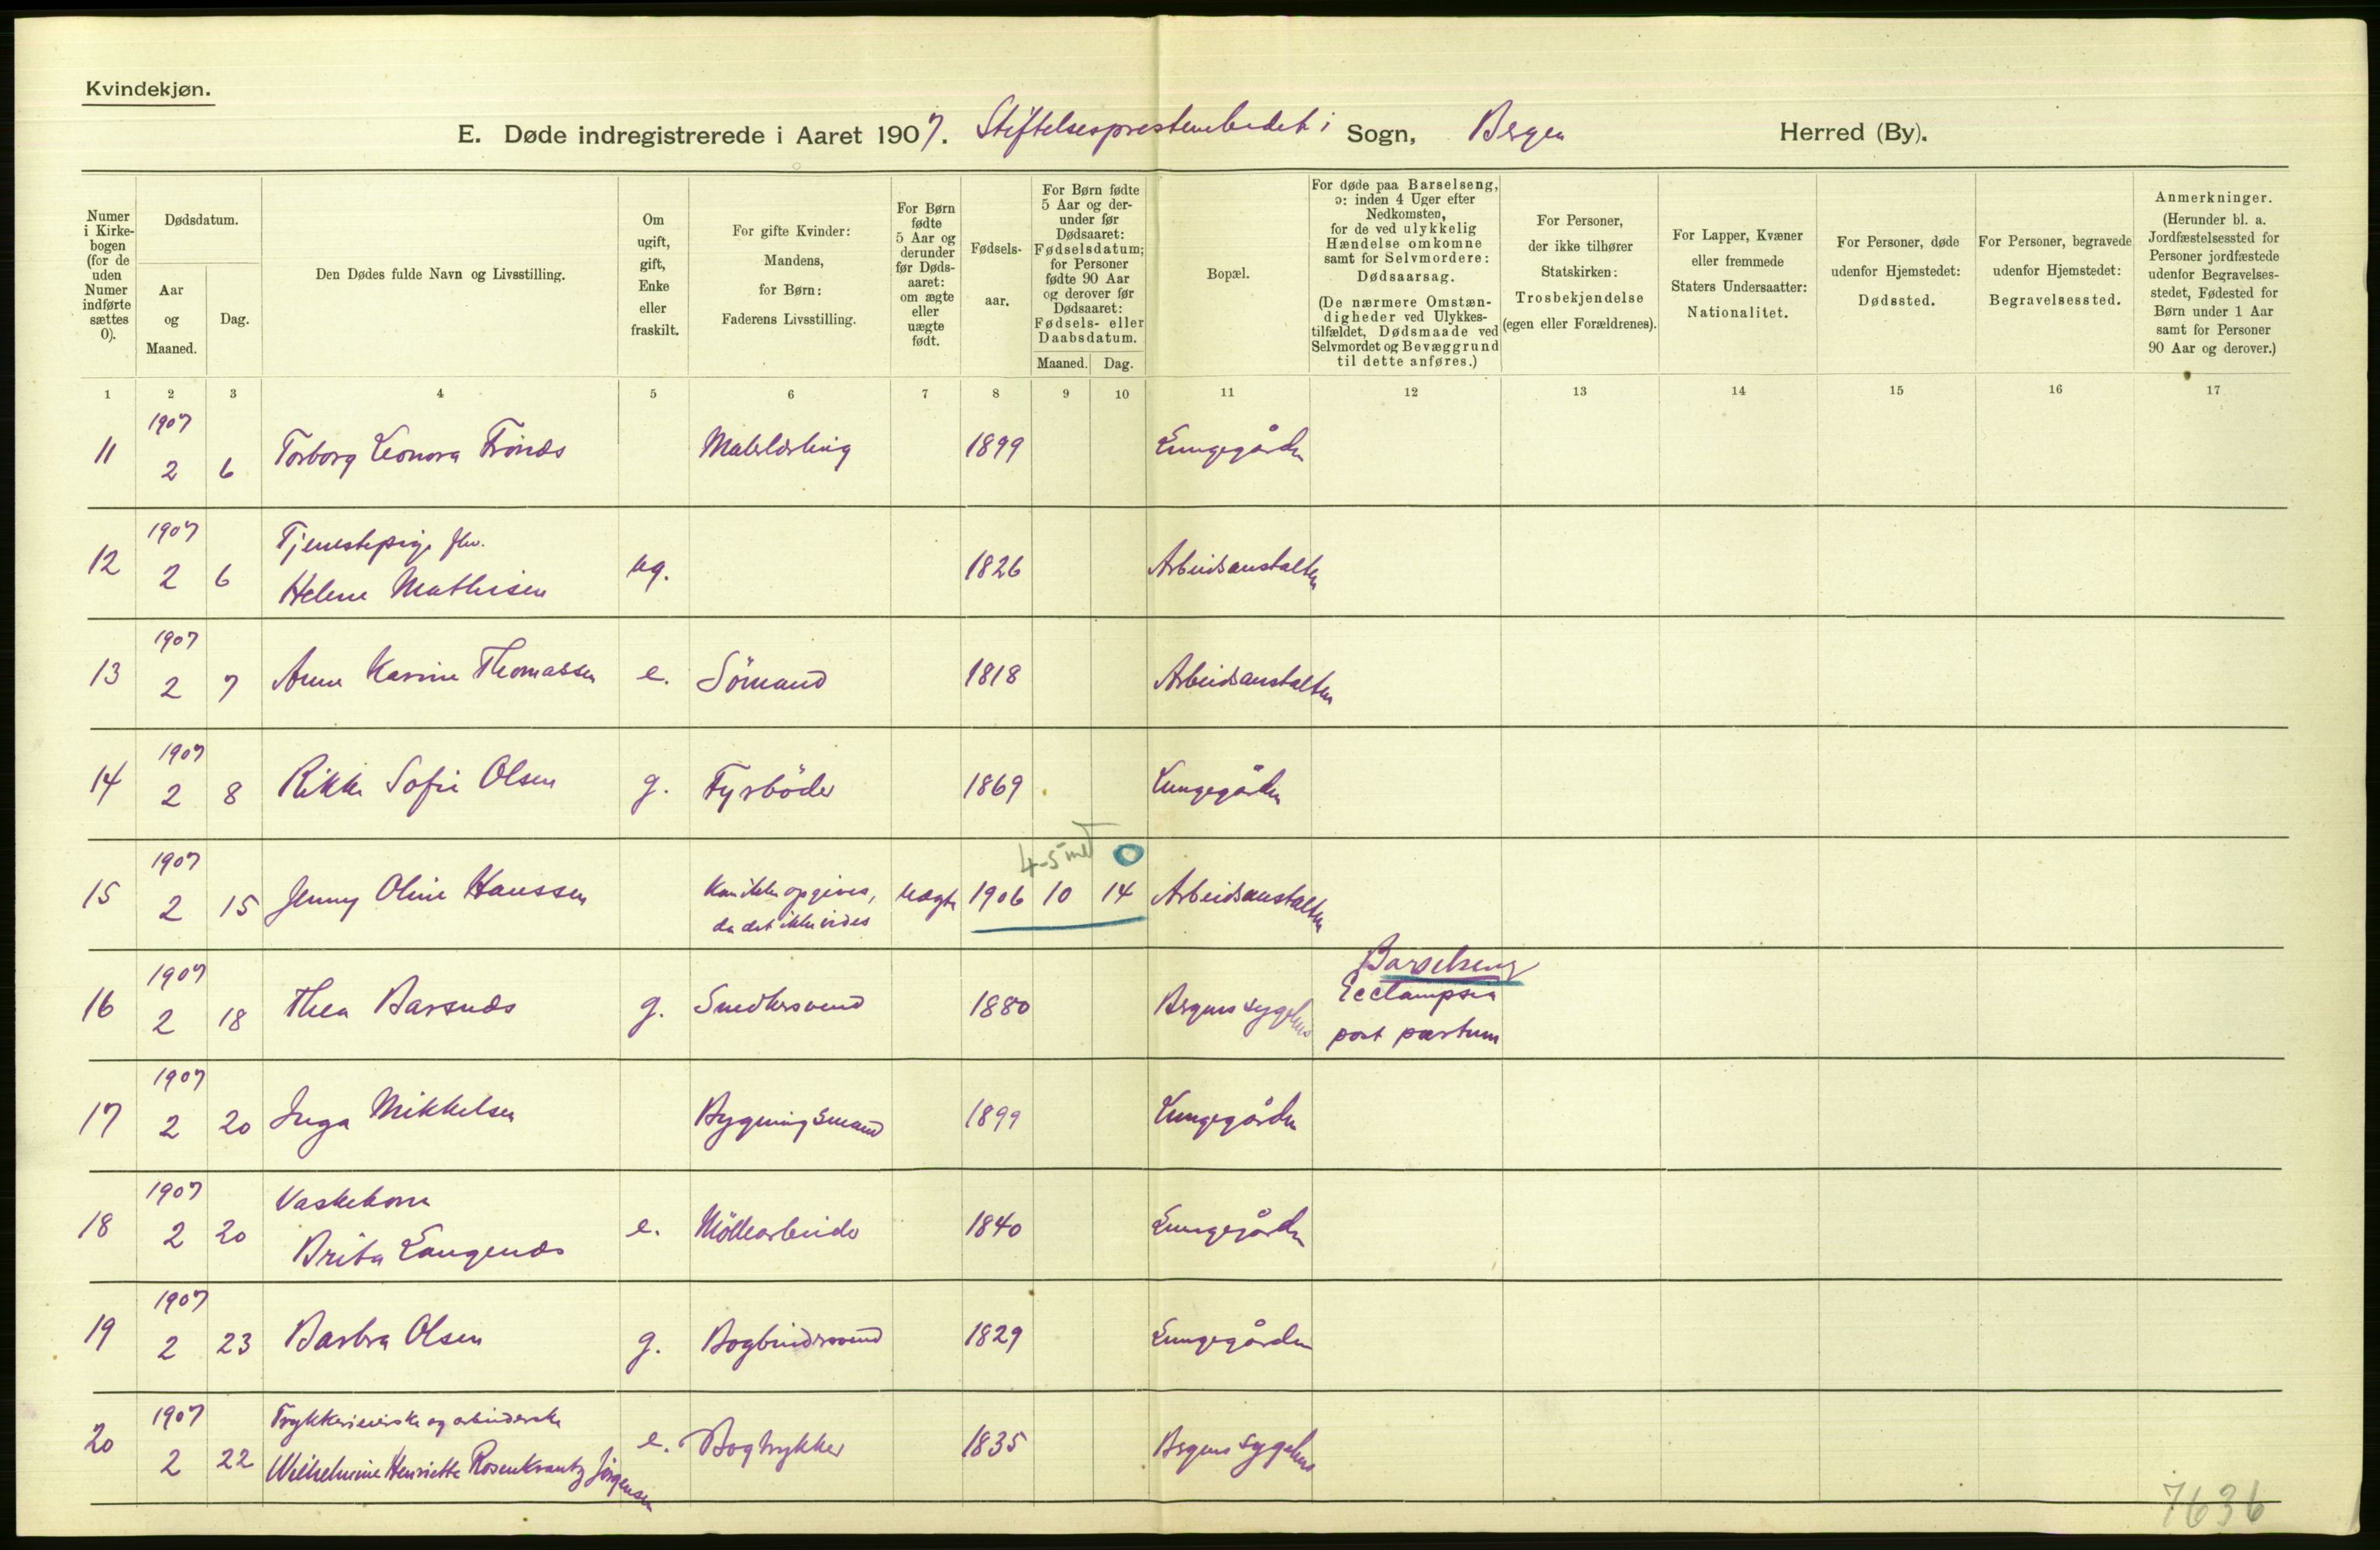 Kvindekjøn.
E. Døde indregistrerede i Aaret 1907. Stiftelsesprestembedet i Sogn, Bergen Herred (By).
Numer i Kirkebogen (for de uden Numer indførte sættes 0).
Dødsdatum.
Aar og Maaned.
Dag.
Den Dødes fulde Navn og Livsstilling.
Om ugift, gift, Enke eller fraskilt.
For gifte Kvinder: Mandens, for Børn: Faderens Livsstilling.
For Børn fødte 5 Aar og derunder før Dødsaaret: om ægte eller uægte født.
Fødselsaar.
For Børn fødte 5 Aar og derunder før Dødsaaret: Fødselsdatum; for Personer fødte 90 Aar og derover før Dødsaaret: Fødsels- eller Daabsdatum.
Maaned. Dag.
Bopæl.
For døde paa Barselseng, ɔ: inden 4 Uger efter Nedkomsten, for de ved ulykkelig Hændelse omkomne samt for Selvmordere: Dødsaarsag.
(De nærmere Omstændigheder ved Ulykkestilfældet, Dødsmaade ved Selvmordet og Bevæggrund til dette anføres.)
For Personer, der ikke tilhører Statskirken: Trosbekjendelse (egen eller Forældrenes).
For Lapper, Kvæner eller fremmede Staters Undersaatter: Nationalitet.
For Personer, døde udenfor Hjemstedet: Dødssted.
For Personer, begravede udenfor Hjemstedet: Begravelsessted.
Anmerkninger. (Herunder bl. a. Jordfæstelsessted for Personer jordfæstede udenfor Begravelsesstedet, Fødested for Børn under 1 Aar samt for Personer 90 Aar og derover.)
1 2 3 4 5 6 7 8 9 10 11 12 13 14 15 16 17
1907
11 2 6 Torborg Leonora Trönæs Malerlærling 1899 Lungegården
1907 Tjenestepige fhv.
12 2 6 Helene Mathisen ug. 1826 Arbeidsanstalten
1907
13 2 7 Anne Karine Thomassen e. Sömand 1818 Arbeidsanstalten
1907
14 2 8 Rikke Sofie Olsen g. Fyrböder 1869 Lungegården
1907 4-5 0
15 2 15 Jenny Oline Hanssen Kan ikke opgives, uægte 1906 10 14 Arbeidsanstalten
da det ikke vides
1907 Barselseng
16 2 18 Thea Barsnæs g. Snedkersvend 1880 Bergens sygehus Ecclampsia
post partum
1907
17 2 20 Inga Mikkelsen Bygningsmand 1899 Lungegården
1907 Vaskekone
18 2 20 Brita Langenæs e. Möllearbeider 1840 Lungegården
1907
19 2 23 Barbra Olsen g. Bogbindersvend 1829 Lungegården
1907 og arbeiderske
20 2 22 Wilhelmine Henriette Rosenkrantz Jörgensen e. Bogtrykker 1835 Bergens sygehus
7636